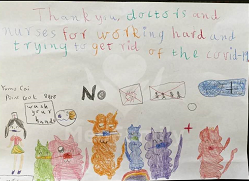 Thank you doctors and
nurses for working hard and
trying to get rid of the covid-19
No
wash
your
hands